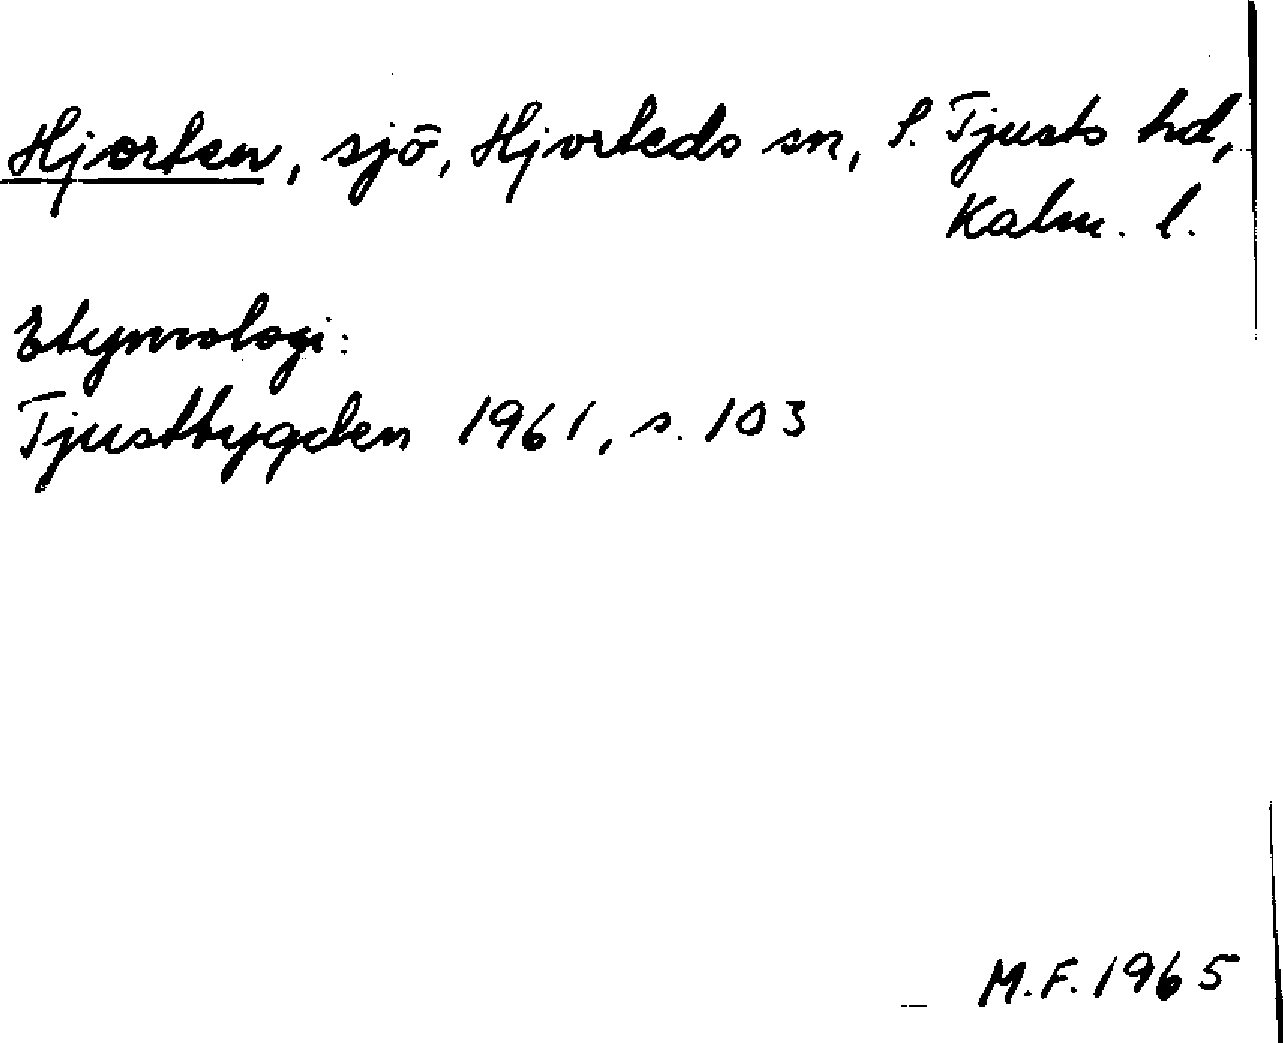 Hjorten, sjö, Hjorteds sn, S. Tjusts hd,
Kalm. l.
Etymologi:
Tjustbygden 1961, s. 103
M.F. 1965